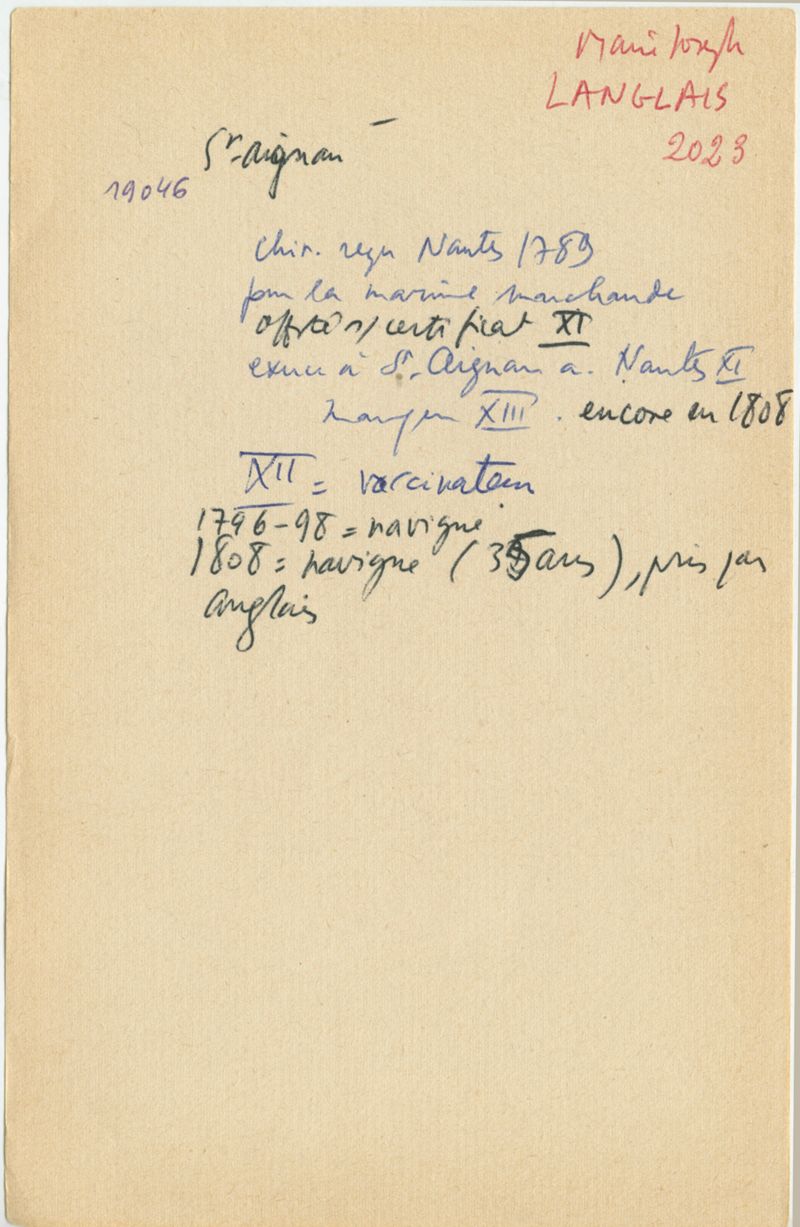 Marie Joseph
LANGLAIS
2023
St-Aignan
19046
Chir. reçu Nantes 1789
pour la marine marchande
certificat XI
exerce à St. Aignan a. Nantes XI
XIII. encore en 1808
XII = vaccinateur
1796-98 = navigue
1808 = navigue (35 ans), pris par
anglais